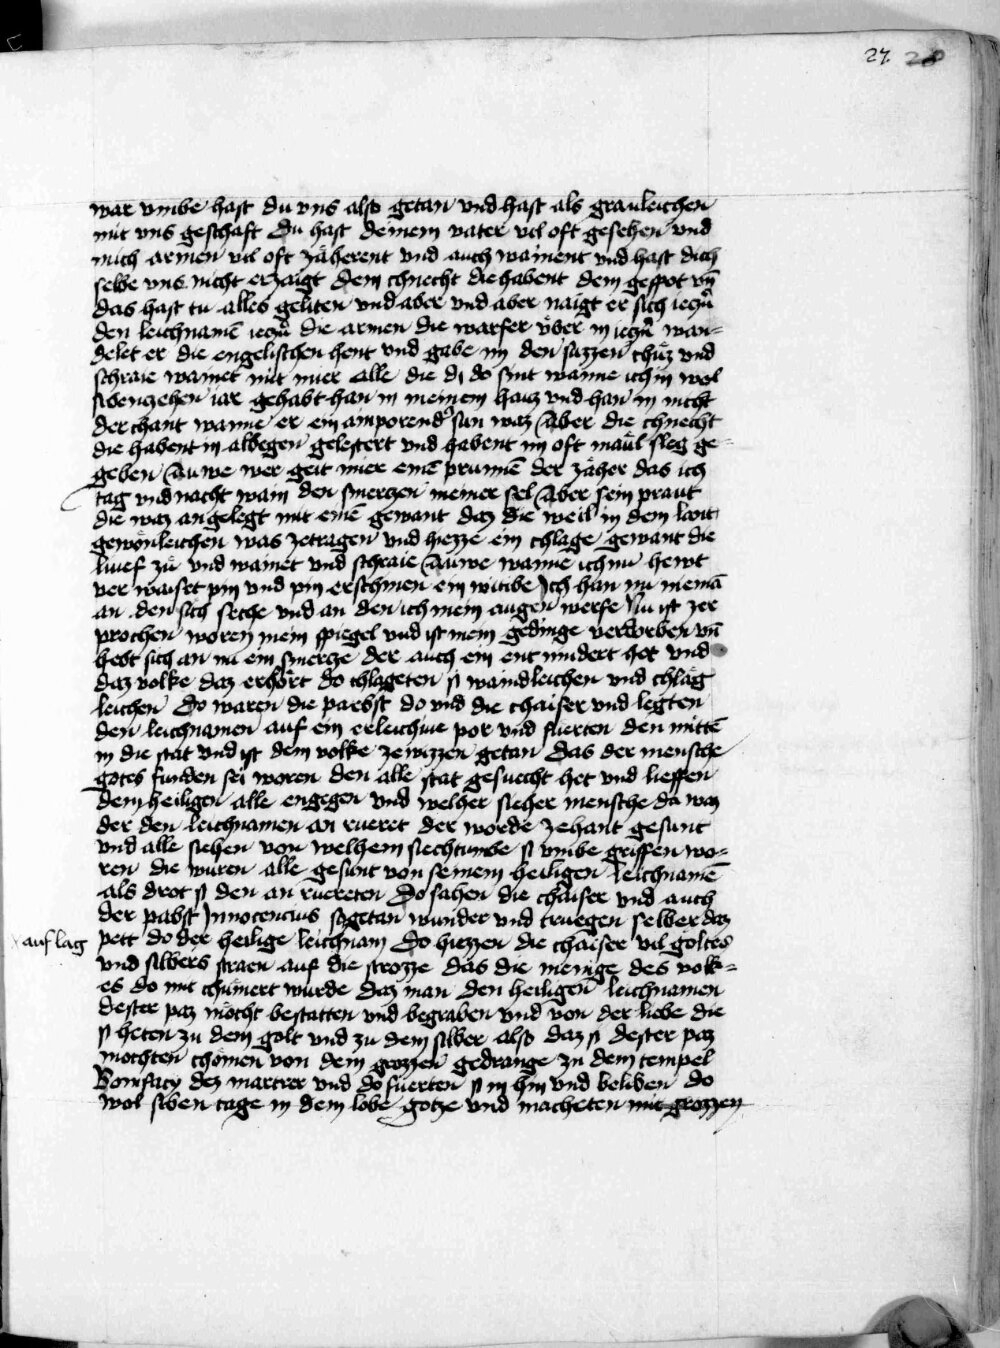 27 28
war vmbe hast du vns also getan vnd hast als grauleichen
mit vns geschaft Du hast deinem vater vil oft gesehen vnd
mich armen vil oft zäherent vnd auch wainent vnd hast dich
selbe vns nicht erzaigt dem chnecht die habent dem gespot vn̄
das hast tu alles geliten vnd aber vnd aber naigt er sich
den leichnamē die armen die warf er v̈ber in wan=
delet er die engelischen hent vnd gabe im den suzzen chuͤz vnd
schraie wainet mit mier alle die di do sint wanne ich in wol
sibenzehen iar gehabt han in meinem hauz vnd han in nicht
derchant wanne er ein ainporender sun waz Aber die chnecht
die habent in albegen gelestert vnd habent im oft maul sleg ge=
geben Auwe wer geit mier einē prunnē der zäher das ich
tag vnd nacht wain den smerczen meiner sel Aber sein praut
die waz angelegt mit einē gewant daz die weil in dem lant
gewonleichen was zetragen vnd hiezze ein chlage gewant die
lieef zuͤ vnd wainet vnd schraie Auwe wanne ich nu hewt
ver waiset pin vnd pin erschinen ein witibe Ich han nu niemā
an den sich seche vnd an den ich mein augen werfe Nu ist zer
prochen woren mein spiegel vnd ist mein gedinge verdorben vn̄
hebt sich an nu ein smercze der auch ein ent mindert het vnd
daz volke daz erhört do chlageten si waindleichen vnd chläg
leichen Do waren die pabst do vnd die chaiser vnd legten
den leichnamen auf ein erleichiue por vnd fuerten den mittē
in die stat vnd ist dem volke ze wizzen getan Das der mensche
gotes funden sei woren den alle stat gesuecht het vnd lieffen
dem heiligen alle engegen vnd welher siecher mensche da waz
der den leichnamen an rueret der worde zehant gesunt
vnd alle siehen von welhem siechtumbe si vmbe griffen wo=
ren die wuren alle gesunt von seinem heiligen leichnamē
als drot si den an ruereten Do sahen die chaiser vnd auch
der pabst Innocencius sogetan wunder vnd truegen selber daz
auf lag pett do der heilige leichnam Do hiezzen die chaiser vil goltes
vnd silbers straen auf die strozze das die menige des volk=
es do mit chümert wurde daz man den heiligen leichnamen
dester paz möcht bestatten vnd begraben vnd von der liebe die
si heten zu dem golt vnd zu dem silber also daz si dester paz
mochten chömen von dem grozzen gedrange zu dem tempel
Bonifacy dez martrer vnd do fuerten si in hin vnd beliben do
wol siben tage in dem lobe gotze vnd macheten mit grozzen